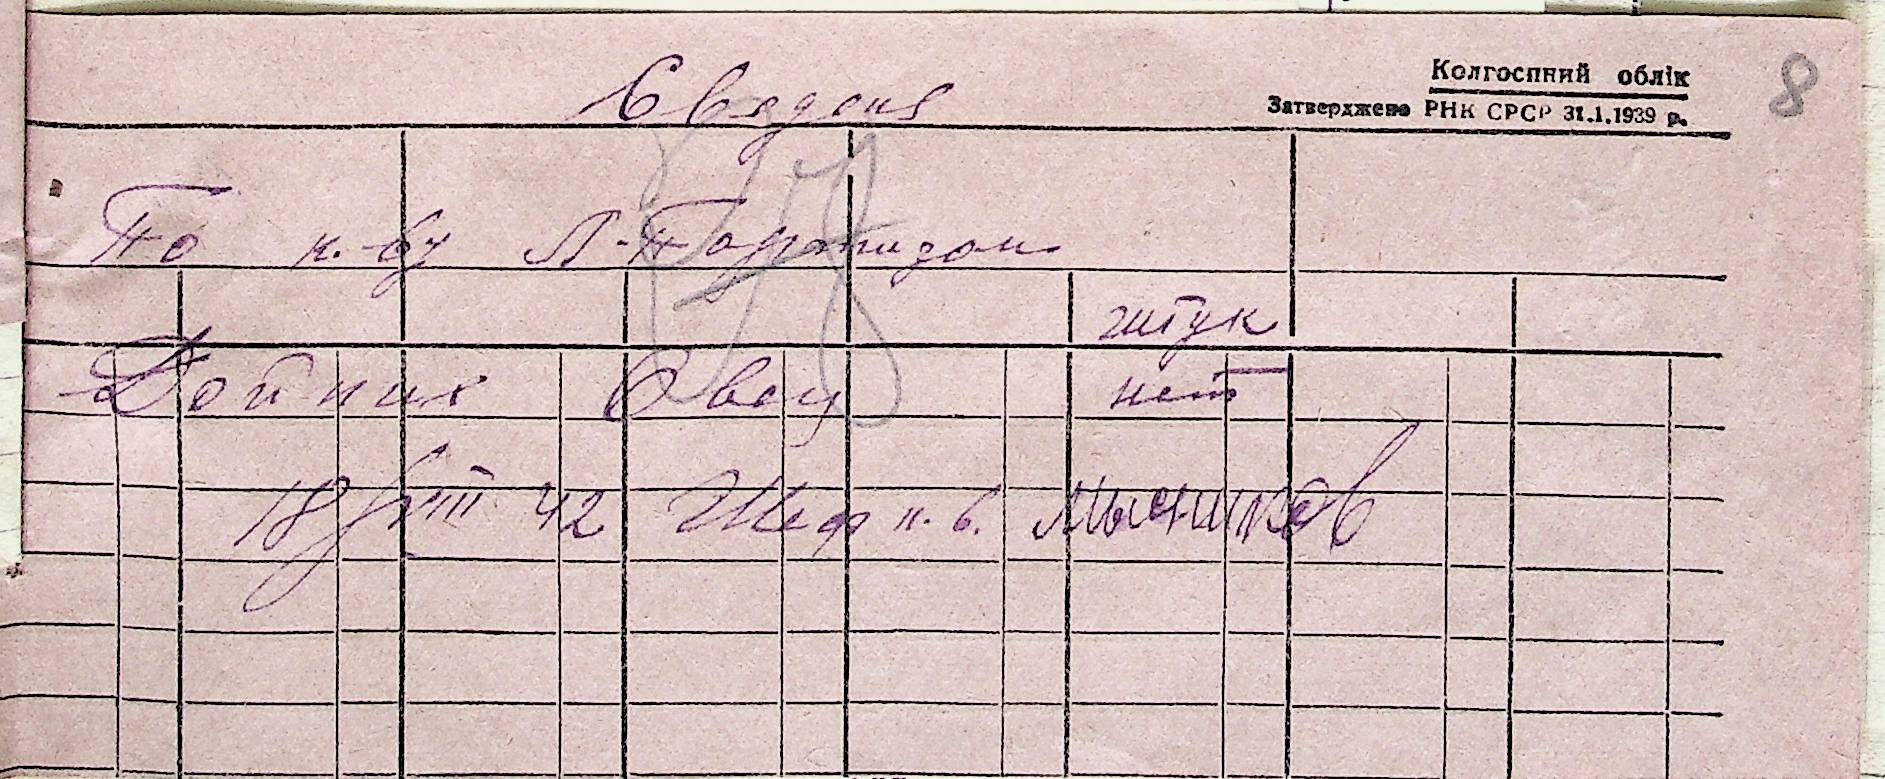 Колгоспний облік
Затверджено РНК СРСР 31.1.1939 р.
8
Сведеня
По к-ву Л-Партизан
штук
Дойних Овец нет
18/VIII 42 Шеф к.в. Мысников